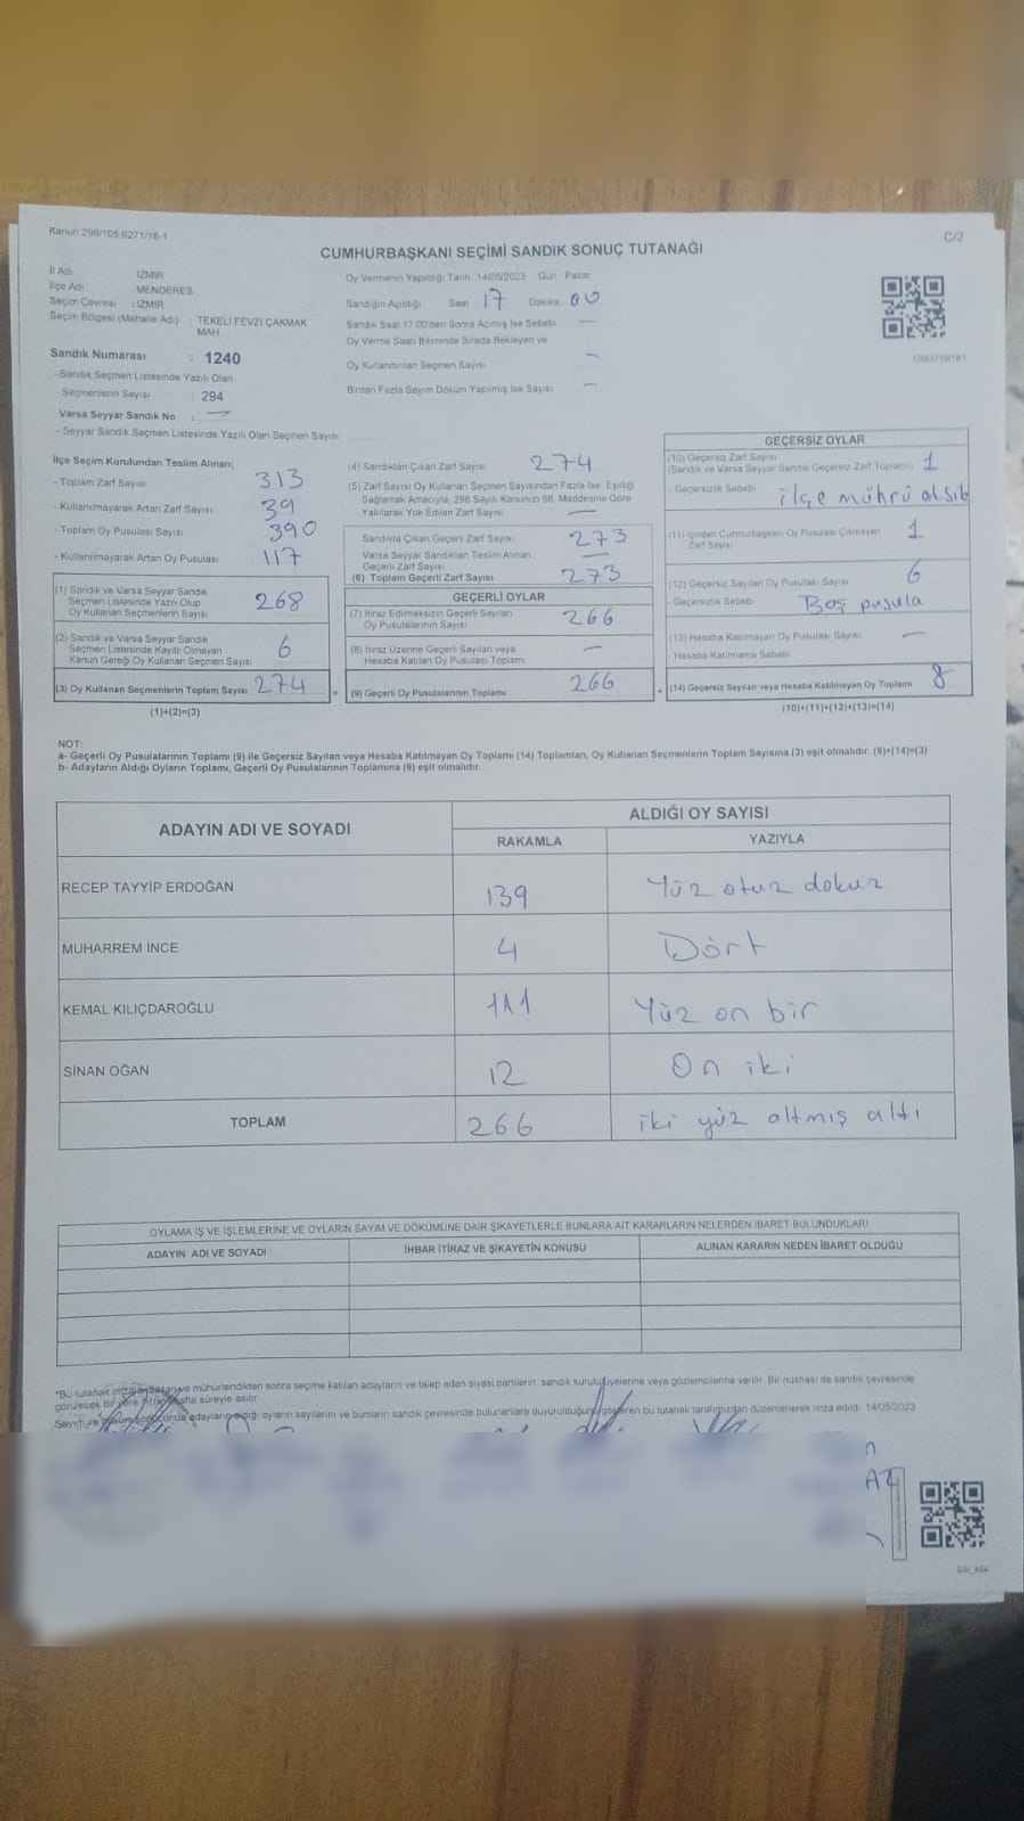 Kanun 298/105 6271/16-1
C/2
CUMHURBAŞKANI SEÇİMİ SANDIK SONUÇ TUTANAĞI
İl Adı : İZMİR
İlçe Adı : MENDERES
Seçim Çevresi : İZMİR
Seçim Bölgesi (Mahalle Adı) : TEKELİ FEVZİ ÇAKMAK MAH
Sandık Numarası : 1240
- Sandık Seçmen Listesinde Yazılı Olan
Seçmenlerin Sayısı : 294
Varsa Seyyar Sandık No : —
- Seyyar Sandık Seçmen Listesinde Yazılı Olan Seçmen Sayısı
Oy Vermenin Yapıldığı Tarih 14/05/2023 Gün Pazar
Sandığın Açıldığı Saat 17 Dakika 00
Sandık Saat 17.00'den Sonra Açılmış İse Sebebi —
Oy Verme Saati Bitiminde Sırada Bekleyen ve
Oy Kullandırılan Seçmen Sayısı —
Birden Fazla Sayım Döküm Yapılmış İse Sayısı —
İlçe Seçim Kurulundan Teslim Alınan;
- Toplam Zarf Sayısı 313
- Kullanılmayarak Artan Zarf Sayısı 39
- Toplam Oy Pusulası Sayısı 390
- Kullanılmayarak Artan Oy Pusulası 117
(1) Sandık ve Varsa Seyyar Sandık
Seçmen Listesinde Yazılı Olup
Oy Kullanan Seçmenlerin Sayısı 268
(2) Sandık ve Varsa Seyyar Sandık
Seçmen Listesinde Kayıtlı Olmayan
Kanun Gereği Oy Kullanan Seçmen Sayısı 6
(3) Oy Kullanan Seçmenlerin Toplam Sayısı 274
(1)+(2)=(3)
(4) Sandıktan Çıkan Zarf Sayısı 274
(5) Zarf Sayısı Oy Kullanan Seçmen Sayısından Fazla İse, Eşitliği
Sağlamak Amacıyla, 298 Sayılı Kanunun 98. Maddesine Göre
Yakılarak Yok Edilen Zarf Sayısı —
Sandıkta Çıkan Geçerli Zarf Sayısı 273
Varsa Seyyar Sandıktan Teslim Alınan
Geçerli Zarf Sayısı —
(6) Toplam Geçerli Zarf Sayısı 273
GEÇERLİ OYLAR
(7) İtiraz Edilmeksizin Geçerli Sayılan
Oy Pusulalarının Sayısı 266
(8) İtiraz Üzerine Geçerli Sayılan veya
Hesaba Katılan Oy Pusulası Toplamı —
(9) Geçerli Oy Pusulalarının Toplamı 266
GEÇERSİZ OYLAR
(10) Geçersiz Zarf Sayısı
(Sandık ve Varsa Seyyar Sandık Geçersiz Zarf Toplamı) 1
- Geçersizlik Sebebi ilçe mührü
(11) İçinden Cumhurbaşkanı Oy Pusulası Çıkmayan
Zarf Sayısı 1
(12) Geçersiz Sayılan Oy Pusulası Sayısı 6
- Geçersizlik Sebebi Boş pusula
(13) Hesaba Katılmayan Oy Pusulası Sayısı —
- Hesaba Katılmama Sebebi
(14) Geçersiz Sayılan veya Hesaba Katılmayan Oy Toplamı 8
(10)+(11)+(12)+(13)=(14)
NOT:
a- Geçerli Oy Pusulalarının Toplamı (9) ile Geçersiz Sayılan veya Hesaba Katılmayan Oy Toplamı (14) Toplamları, Oy Kullanan Seçmenlerin Toplam Sayısına (3) eşit olmalıdır. (9)+(14)=(3)
b- Adayların Aldığı Oyların Toplamı, Geçerli Oy Pusulalarının Toplamına (9) eşit olmalıdır.
ADAYIN ADI VE SOYADI
ALDIĞI OY SAYISI
RAKAMLA YAZIYLA
RECEP TAYYİP ERDOĞAN 139 Yüz otuz dokuz
MUHARREM İNCE 4 Dört
KEMAL KILIÇDAROĞLU 111 Yüz on bir
SİNAN OĞAN 12 On iki
TOPLAM 266 iki yüz altmış altı
OYLAMA İŞ VE İŞLEMLERİNE VE OYLARIN SAYIM VE DÖKÜMÜNE DAİR ŞİKAYETLERLE BUNLARA AİT KARARLARIN NELERDEN İBARET BULUNDUKLARI
ADAYIN ADI VE SOYADI İHBAR İTİRAZ VE ŞİKAYETİN KONUSU ALINAN KARARIN NEDEN İBARET OLDUĞU
mühürlendikten sonra seçime katılan adayların ve talep eden siyasi partilerin sandık kurulu üyelerine veya gözlemcilerine verilir. Bir nüshası da sandık çevresinde
süreyle asılır.
adayların aldığı oyların sayılarını ve bunların sandık çevresinde bulunanlara duyurulduğunu gösteren bu tutanak tarafımızdan düzenlenerek imza edildi. 14/05/2023